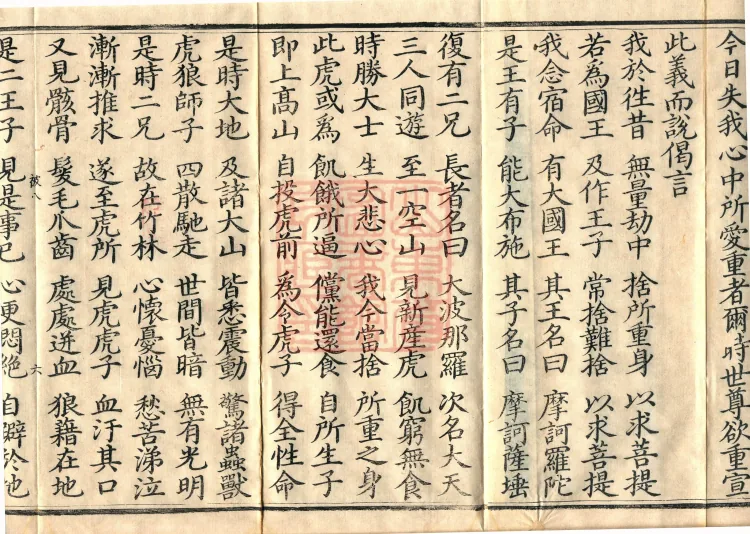 今日失我心中所愛重者爾時世尊欲重宣
此義而說偈言
我於徃昔　無量劫中　捨所重身　以求菩提
若爲國王　及作王子　常捨難捨　以求菩提
我念宿命　有大國王　其王名曰　摩訶羅陀
是王有子　能大布施　其子名曰　摩訶薩埵
復有二兄　長者名曰　大波那羅　次名大天
三人同遊　至一空山　見新産虎　飢窮無食
時勝大士　生大悲心　我今當捨　所重之身
此虎或爲　飢餓所逼　儻能還食　自所生子
即上髙山　自投虎前　爲令虎子　得全性命
是時大地　及諸大山　皆悉震動　驚諸蟲獸
虎狼師子　四散馳走　世間皆暗　無有光明
是時二兄　故在竹林　心懷憂惱　愁苦涕泣
漸漸推求　遂至虎所　見虎虎子　血汙其口
又見骸骨　髮毛爪齒　處處迸血　狼藉在地
是二王子　見是事已　心更悶絶　自躃於地
六